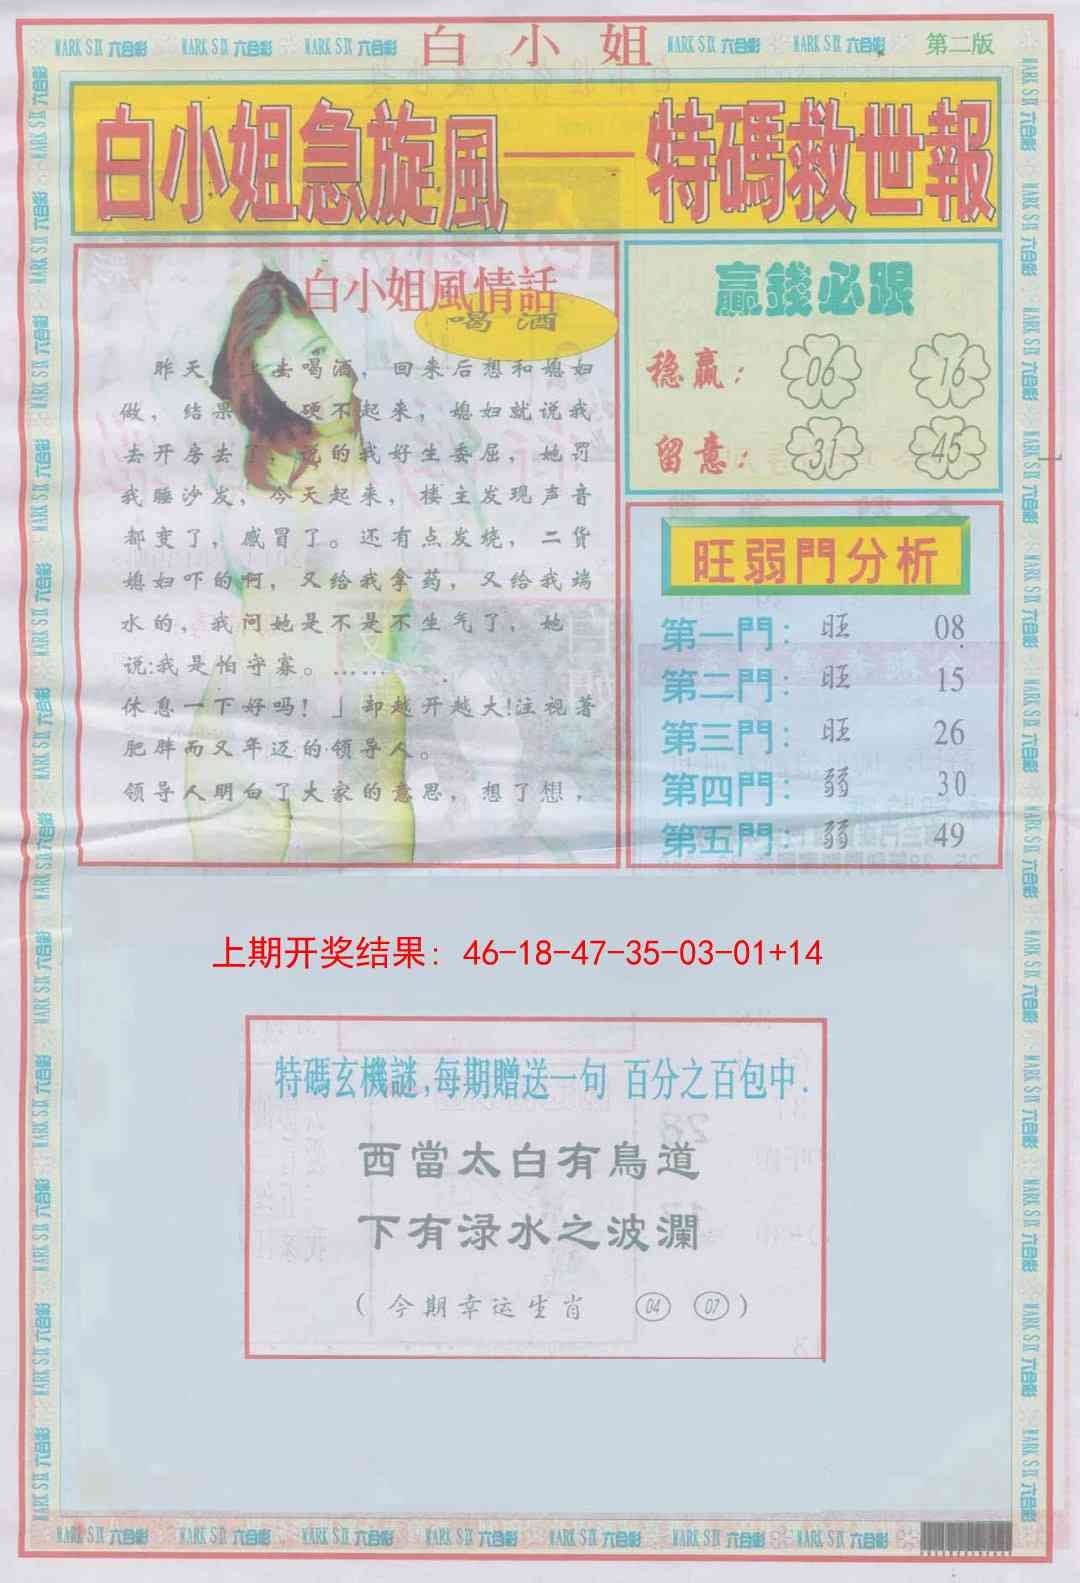 MARK SIX 六合彩 MARK SIX 六合彩 MARK SIX 六合彩 白小姐 MARK SIX 六合彩 MARK SIX 六合彩 第二版
白小姐急旋風——特碼救世報
白小姐風情話
喝酒
昨天 上去喝酒，回来后想和媳妇
做，结果 硬不起来，媳妇就说我
去开房去了，说的我好生委屈，她罚
我睡沙发，今天起来，楼主发现声音
都变了，感冒了。还有点发烧，二货
媳妇吓的啊，又给我拿药，又给我端
水的，我问她是不是不生气了，她
说:我是怕守寡。……
休息一下好吗！」却越开越大!注视著
肥胖而又年迈的领导人。
领导人明白了大家的意思，想了想，
贏錢必跟
稳赢： 06 16
留意： 31 45
旺弱門分析
第一門： 旺 08
第二門： 旺 15
第三門： 旺 26
第四門： 弱 30
第五門： 弱 49
上期开奖结果: 46-18-47-35-03-01+14
特碼玄機謎,每期贈送一句 百分之百包中.
西當太白有鳥道
下有渌水之波瀾
(今期幸运生肖 04 07)
MARK SIX 六合彩 MARK SIX 六合彩 MARK SIX 六合彩 MARK SIX 六合彩 MARK SIX 六合彩 MARK SIX 六合彩 MARK SIX 六合彩 MARK SIX 六合彩